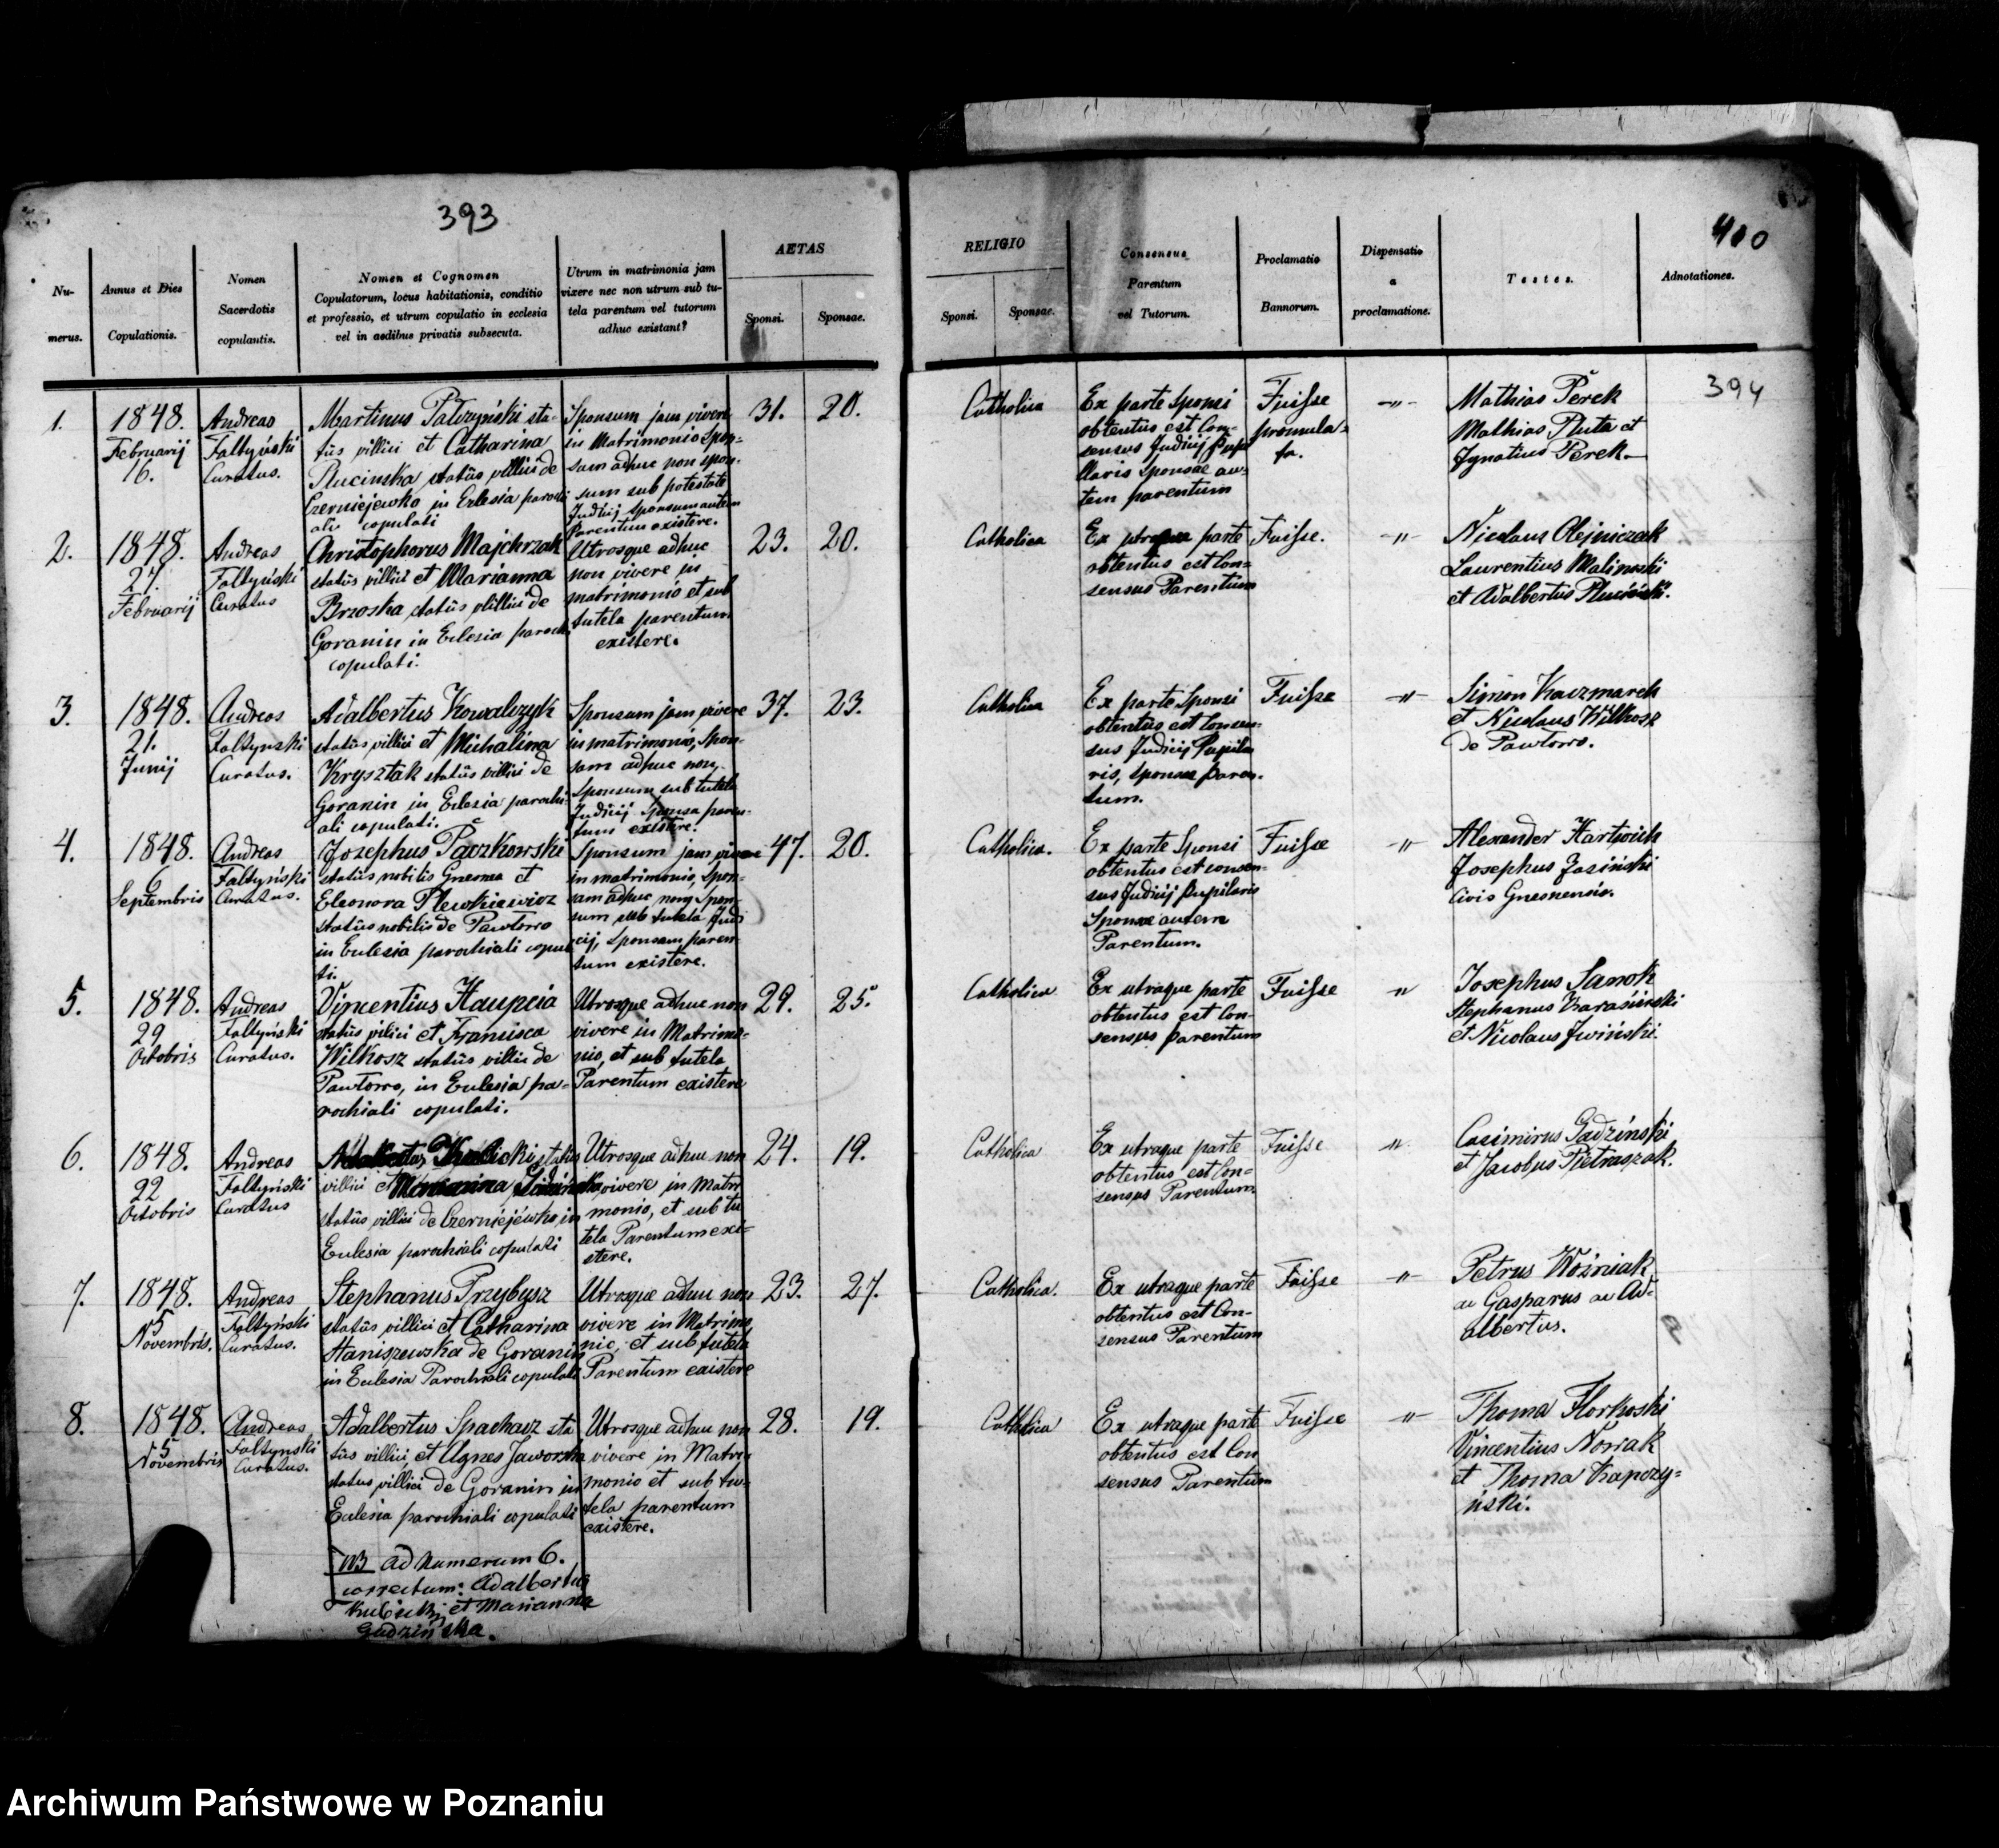 393
400
394
Nu-
merus.
Annus et Dies
Copulationis.
Nomen
Sacerdotis
copulantis.
Nomen et Cognomen
Copulatorum, locus habitationis, conditio
et professio, et utrum copulatio in ecclesia
vel in aedibus privatis subsecuta.
Utrum in matrimonia jam
vixere nec non utrum sub tu-
tela parentum vel tutorum
adhuc existant?
AETAS
Sponsi.
Sponsae.
RELIGIO
Sponsi.
Sponsae.
Consensus
Parentum
vel Tutorum.
Proclamatio
Bannorum.
Dispensatio
a
proclamatione.
Testes.
Adnotationes.
1.
1848.
Februarij
16.
Andreas
Faltyński
Curatus.
Martinus Pałczyński sta-
tûs villici et Catharina
Rucinska statûs villici de
Czerniejewko in Eclesia parochi
ali copulati
Sponsum jam vivere
in Matrimonio Spon-
sam adhuc non spon-
sum sub potestate
Judicij Sponsam autem
Parentum existere.
31.
20.
Catholica
Ex parte Sponsi
obtentus est Con-
sensus Judicij Pupi
llaris Sponsae au-
tem parentum
Fuisse
promulga-
ta.
-"-
Mathias Perek
Mathias Pluta et
Ignatius Perek.
2.
1848.
27.
Februarij
Andreas
Faltyński
Curatus
Christophorus Majchrzak
statûs villici et Marianna
Brzoska statûs villici de
Goranin in Eclesia paroch
copulati.
Utrosque adhuc
non vivere in
matrimonio et sub
tutela parentum
existere.
23.
20.
Catholica
Ex utraque parte
obtentus est Con-
sensus Parentum
Fuisse.
-"-
Nicolaus Olejniczak
Laurentius Malinoski
et Adalbertus Pluciński.
3.
1848.
21.
Junij
Andreas
Faltynski
Curatus.
Adalbertus Kowalczyk
statûs villici et Michalina
Krysztak statûs villici de
Goranin in Eclesia parochi-
ali copulati.
Sponsum jam vivere
in matrimonio, Spon-
sam adhuc non,
Sponsum sub tutela
Judicij Sponsa paren-
tum existere.
37.
23.
Catholica
Ex parte Sponsi
obtentûs est Consen-
sus Judicij Pupila
ris, Sponsae Paren-
tum.
Fuisse
-"-
Simon Kaczmarek
et Nicolaus Wilkosz
de Pawłowo.
4.
1848.
6
Septembris
Andreas
Faltyński
Curatus.
Josephus Paczkowski
statûs nobilis Gnesna et
Eleonora Plewkiewicz
statûs nobilis de Pawłowo
in Eculesia parochiali copula
ti.
Sponsum jam vivere
in matrimonio, Spon-
sam adhuc non, Spon-
sum sub tutela Judi
cij, Sponsam paren-
tum existere.
47.
20.
Catholica.
Ex parte Sponsi
obtentus est consen-
sus Judicij Pupilaris
Sponsae autem
Parentum.
Fuisse
-"-
Alexander Hartwich
Josephus Jasiński
Civis Gnesnensis.
5.
1848.
29
Octobris
Andreas
Faltyński
Curatus.
Vincentius Haupcia
statûs vilici et Francisca
Wilkosz statûs villici de
Pawłowo, in Eculesia pa-
rochiali copulati.
Utrosque adhuc non
vivere in Matrimo-
nio, et sub tutela
Parentum existere
29.
25.
Catholica
Ex utraque parte
obtentus est Con-
sensus Parentum
Fuisse
"
Josephus Sanok
Stephanus Karasiński
et Nicolaus Iwiński.
6.
1848.
22
Octobris
Andreas
Faltyński
Curatus
statûs
villici et Marianna
statûs villici de Czerniejéwko, in
Eculesia parochiali copulati
Utrosque adhuc non
vivere in Matri
monio, et sub tu
tela Parentum exi-
stere.
24.
19.
Catholica
Ex utraque parte
obtentus est Con-
sensus Parentum
Fuisse
"
Casimirus Gadziński
et Jacobus Pietraszak.
7.
1848.
5
Novembris.
Andreas
Faltyński
Curatus.
Stephanus Przybysz
statûs villici et Catharina
Staniszewska de Goranin
in Eculesia Parochiali copulati
Utrosque adhuc non
vivere in Matrimo
nio, et sub tutela
Parentum existere
23.
27.
Catholica.
Ex utraque parte
obtentus est Con-
sensus Parentum
Fuisse
-"-
Petrus Woźniak
ac Gasparus ac Ad-
albertus.
8.
1848.
5
Novembris
Andreas
Faltynski
Curatus.
Adalbertus Spachacz sta
tûs villici, et Agnes Jaworska
status villici de Goranin in
Eculesia parochiali copulati
Utrosque adhuc non
vivere in Matri
monio et sub tu-
tela parentum
existere.
28.
19.
Catholica
Ex utraque parte
obtentus est Con
sensus Parentum
Fuisse
-"-
Thoma Florkoski
Vincentius Nowak
et Thoma Kapczy-
ński.
NB ad Numerum 6.
correctum: Adalbertus
Kubicki, et Marianna
Gadzińska.
Archiwum Państwowe w Poznaniu